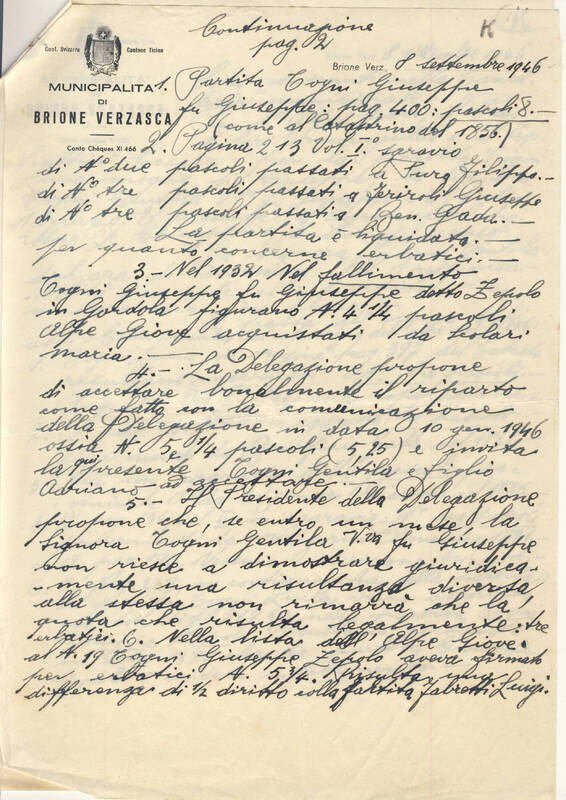 Continuazione
pag. 2
K
Conf. Svizzera Cantone Ticino
MUNICIPALITÀ
DI
BRIONE VERZASCA
Conto Chèques XI 466
Brione Verz., 8 settembre 1946
1. Partita Togni Giuseppe
fu Giuseppe: pag. 400: pascoli 8.—
(come al Catastrino del 1856.)
2. Pagina 213 Vol. I.° sgravio
di N° due pascoli passati a Filippo.—
di N° tre pascoli passati a Giuseppe
di N° tre pascoli passati a
La partita è liquidata.—
per quanto concerne erbatici.—
3.- Nel 1932 Nel fallimento
Togni Giuseppe fu Giuseppe detto Zepolo
in Gordola figurano N. 4 1/4 pascoli
Alpe Giove acquistati da Scolari
maria.—
4.- La Delegazione propone
di accettare bonalmente il riparto
come fatto con la comunicazione
della Delegazione in data 10 gen. 1946
ossia N. 5 e 1/4 pascoli (5,25) e invita
la qui presente Togni Gentila e figlio
Adriano ad accettare.
5.- Il Presidente della Delegazione
propone che, se entro un mese la
Signora Togni Gentila V.va fu Giuseppe
non riesce a dimostrare giuridica-
-mente una risultanza diversa
alla stessa non rimarrà che la
quota che risulta legalmente: tre
erbatici. 6. Nella lista dell'Alpe Giove
al N. 19 Togni Giuseppe Zepolo aveva firmato
per erbatici N. 5 3/4. Risulta una
differenza di 1/2 diritto colla partita Fabretti Luigi.